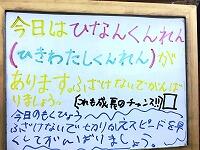 今日はひなんくんれん
(ひきわたしくんれん)が
あります。ふざけないでがんば
りましょう。【これも成長のチャンス!!】
今日のもくひょう
ふざけないでせりかえスピードを早
くしてがんばりましょう。